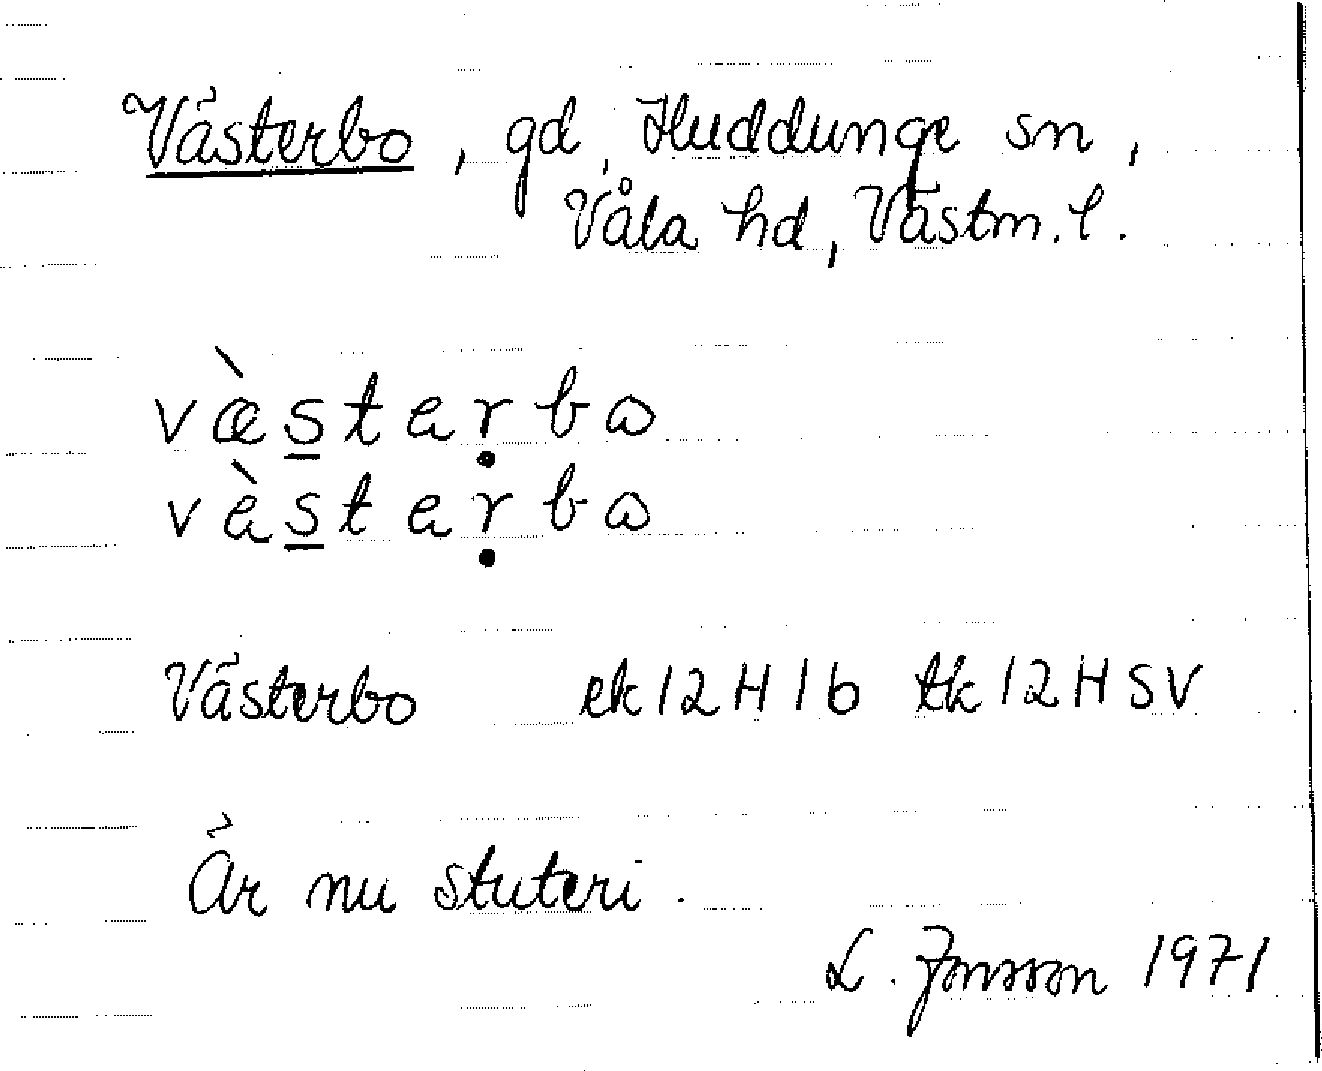 Västerbo, gd, Huddunge sn,
Våla hd, Västm. l.
væ̀s̲teṛbɷ
vès̲teṛbɷ
Västerbo ek 12H1b tk 12H SV
Är nu stuteri.
L. Jonsson 1971